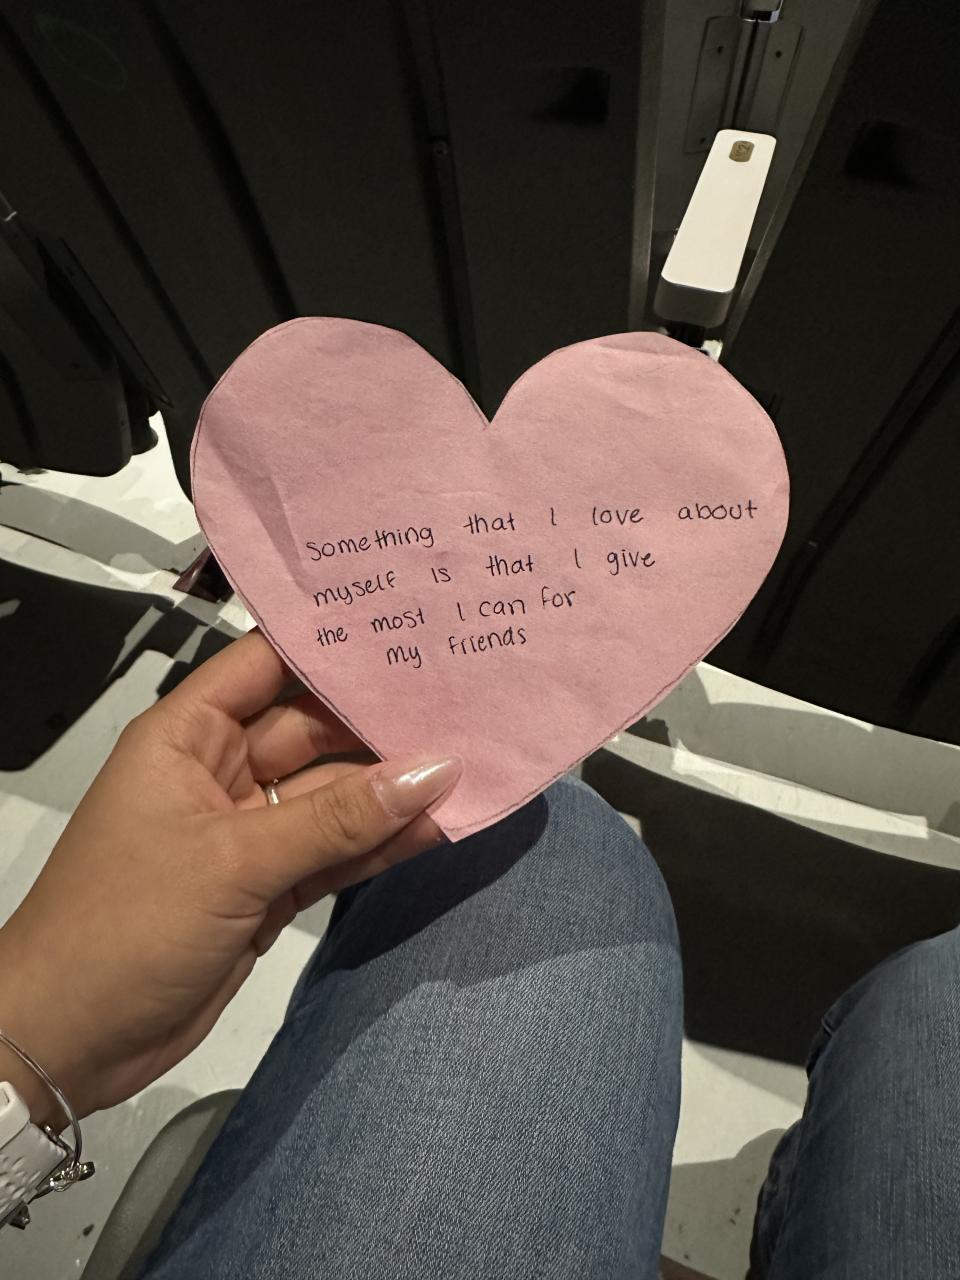 Something that I love about
myself is that I give
the most I can for
my friends